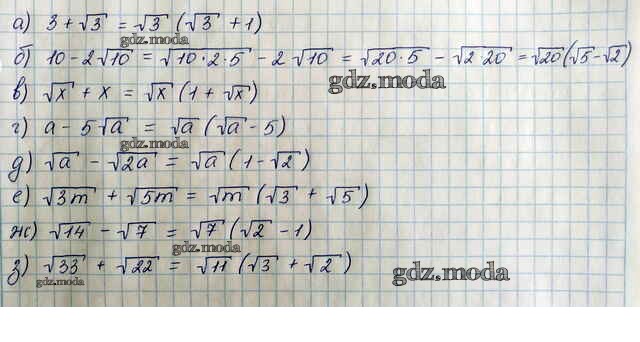 а) 3 + √3 = √3 (√3 + 1)
gdz.moda
б) 10 - 2√10 = √10·2·5 - 2√10 = √20·5 - √2·20 = √20(√5 - √2)
gdz.moda
в) √x + x = √x (1 + √x)
г) a - 5√a = √a (√a - 5)
gdz.moda
д) √a - √2a = √a (1 - √2)
е) √3m + √5m = √m (√3 + √5)
ж) √14 - √7 = √7 (√2 - 1)
gdz.moda
з) √33 + √22 = √11 (√3 + √2)
gdz.moda
gdz.moda